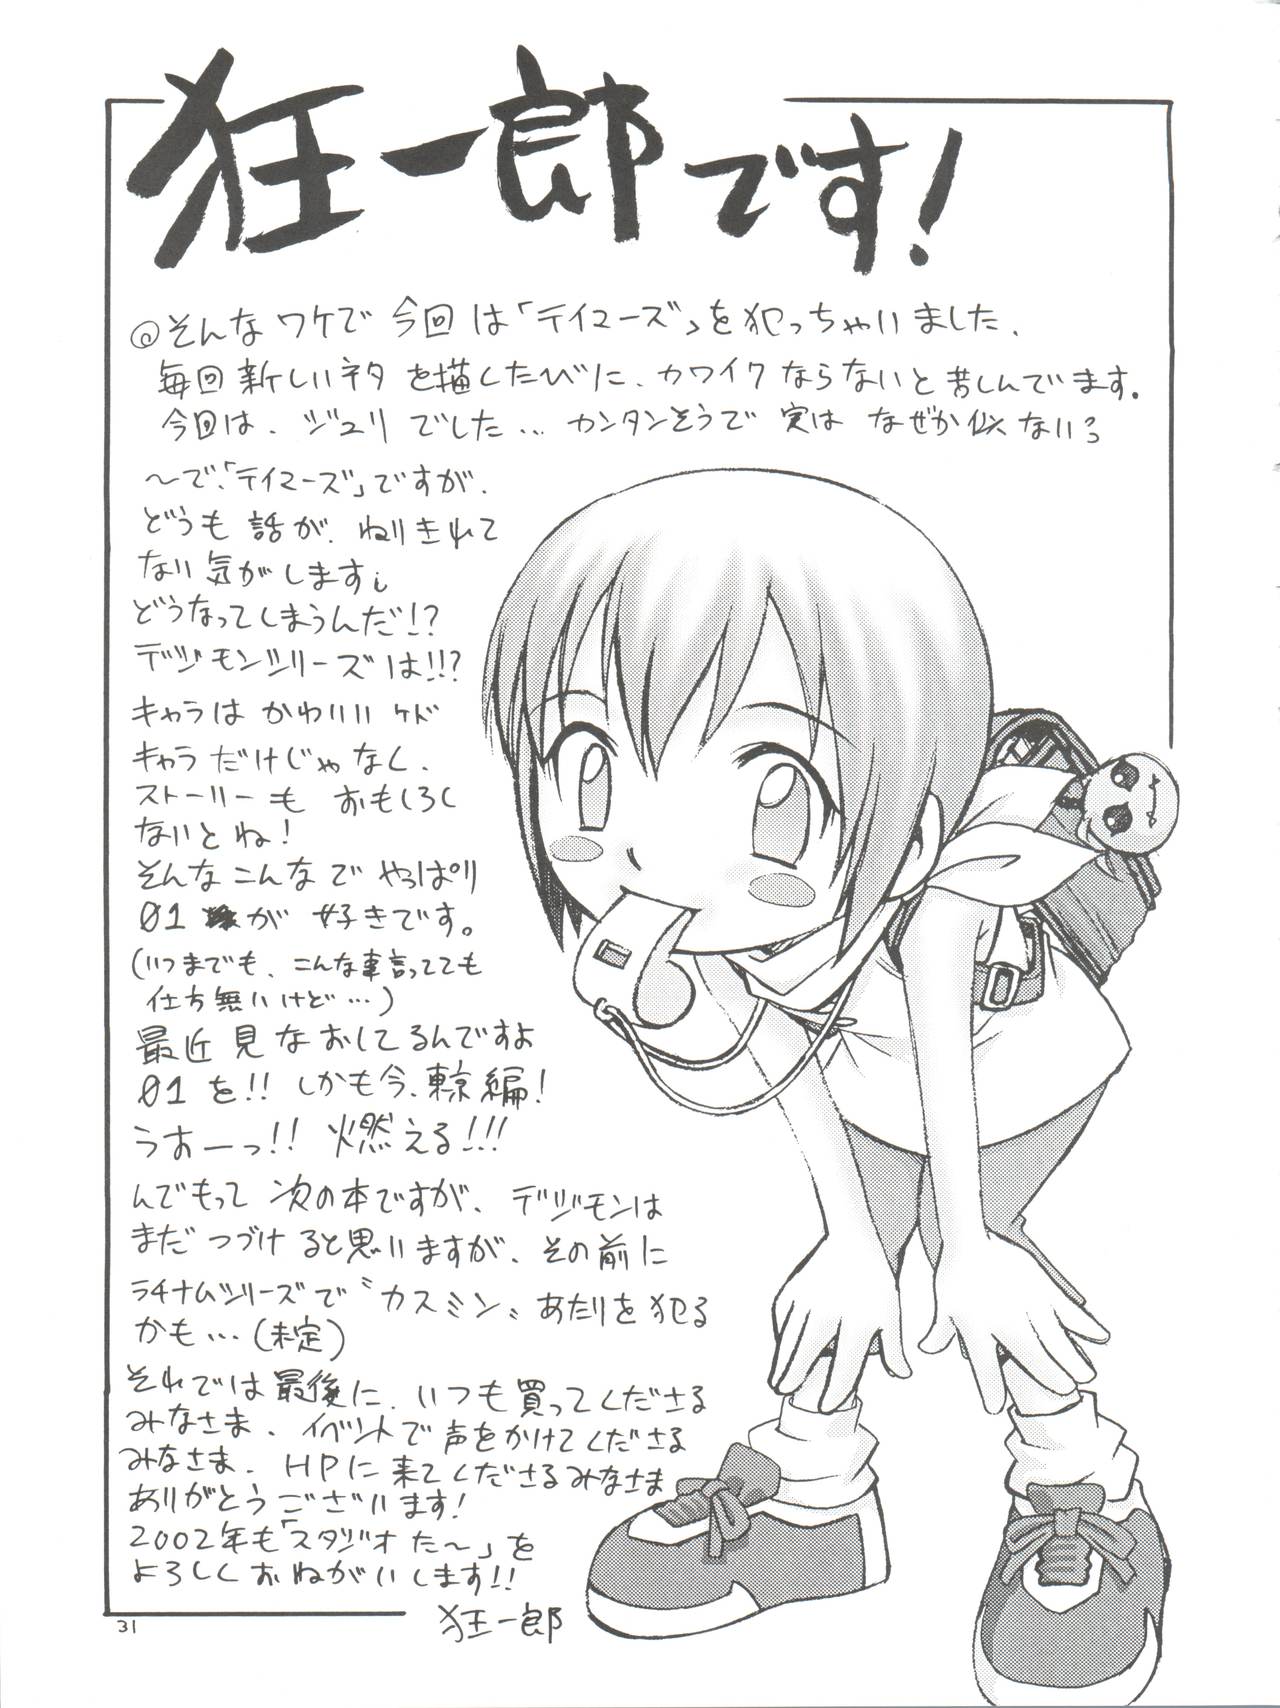 狂一郎です!
@そんなワケで今回は「テイマーズ」を犯っちゃいました.
毎回新しいネタを描くたびに、カワイクならないと苦しんでます。
今回は、ジュリでした… カンタンそうで実はなぜか似ないっ
～で、「テイマーズ」ですが、
どうも話が、ねりきれて
ない気がします。
どうなってしまうんだ!?
デジモンシリーズは!!?
キャラはかわいいケド
キャラだけじゃなく、
ストーリーもおもしろく
ないとね!
そんなこんなでやっぱり
01が好きです。
(いつまでも、こんな事言ってても
仕方無いけど…)
最近見なおしてるんですよ
01を!! しかも今、東京編!
うおーっ!! 燃える!!!
んでもって次の本ですが、デジモンは
まだつづけると思いますが、その前に
ラチナムシリーズで〝カスミン〟あたりを犯る
かも…(未定)
それでは最後に、いつも買ってくださる
みなさま、イベントで声をかけてくださる
みなさま、HPに来てくださるみなさま
ありがとうございます!
2002年も「スタジオた～」を
よろしくおねがいします!!
狂一郎
31